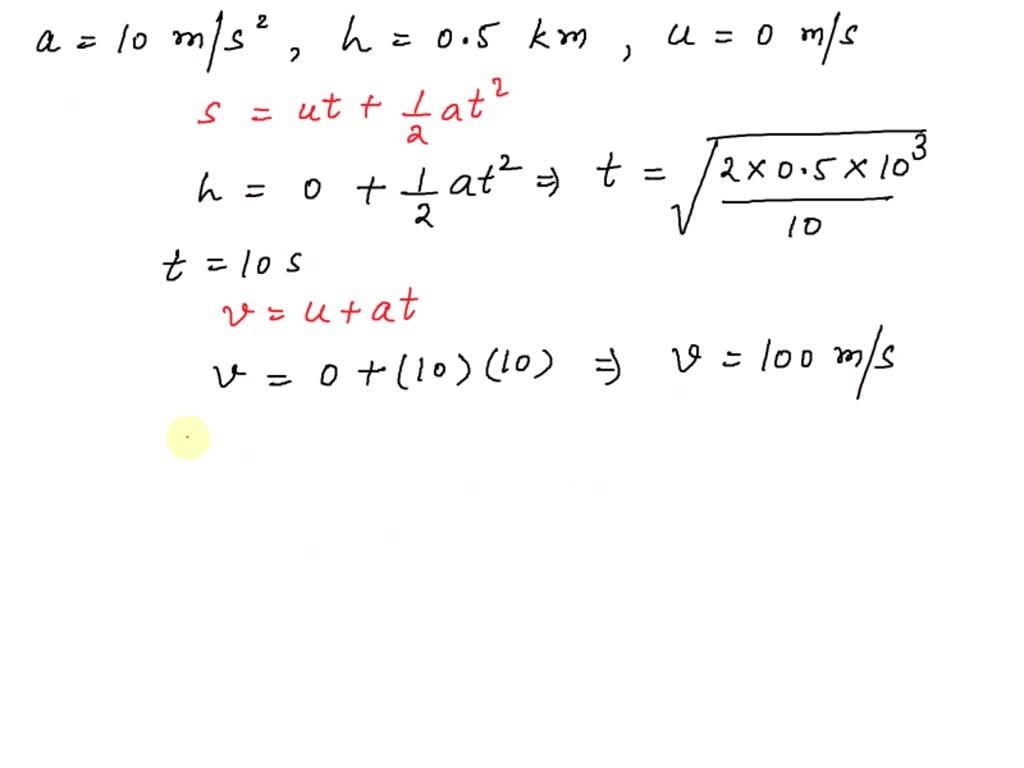 a = 10 m/s², h = 0.5 km, u = 0 m/s
s = ut + 1/2 at²
h = 0 + 1/2 at² ⇒ t = √(2 × 0.5 × 10³ / 10)
t = 10 s
v = u + at
v = 0 + (10) (10) ⇒ v = 100 m/s